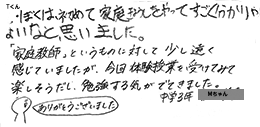 Tくん
ぼくは、初めて家庭きょうしをやってすごく分かりや
よいなと思いました。
「家庭教師」というものに対して少し遠く
感じていましたが、今回体験授業を受けてみて
楽しそうだし、勉強する気がでてきました。
中学3年 Mちゃん
ありがとうございました